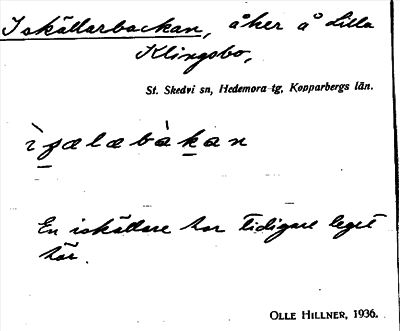 Iskällarbackan, åker å Lilla
Klingsbo,
St. Skedvi sn, Hedemora tg, Kopparbergs län.
En iskällare har tidigare leget
här.
OLLE HILLNER, 1936.